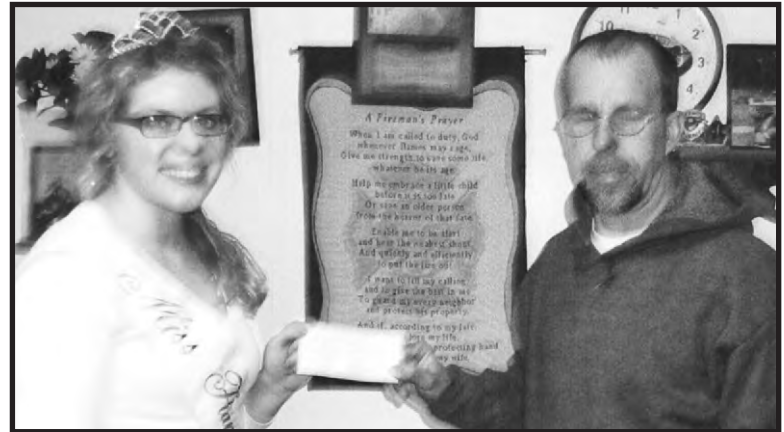 A Fireman's Prayer
When I am called to duty, God
whenever flames may rage,
Give me strength to save some life
whatever be its age.
Help me embrace a little child
before it is too late
Or save an older person
from the horror of that fate.
Enable me to be alert
and hear the weakest shout,
And quietly and efficiently
to put the fire out.
I want to fill my calling
and to give the best in me
To guard my every neighbor
and protect his property.
And if, according to my fate
my life,
protecting hand
my wife
Miss
Fran
11
1
10
2
3
4